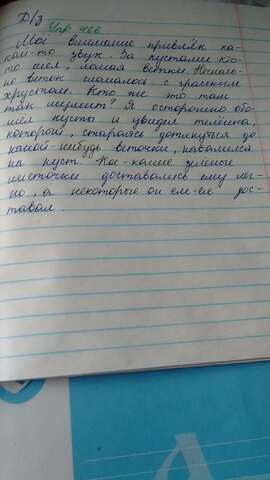 Д/з
Упр 466
Моё внимание привлёк ка-
кой-то звук. За кустами кто-
то шёл, ломая ветки. Несколь-
ко веток сломалось с громким
хрустом. Кто же это там
так шумит? Я осторожно обо-
шёл кусты и увидел телёнка,
который, стараясь дотянуться до
какой-нибудь веточки, навалился
на куст. Кое-какие зелёные
листочки доставались ему лег-
ко, а некоторые он еле-еле дос-
тавал.